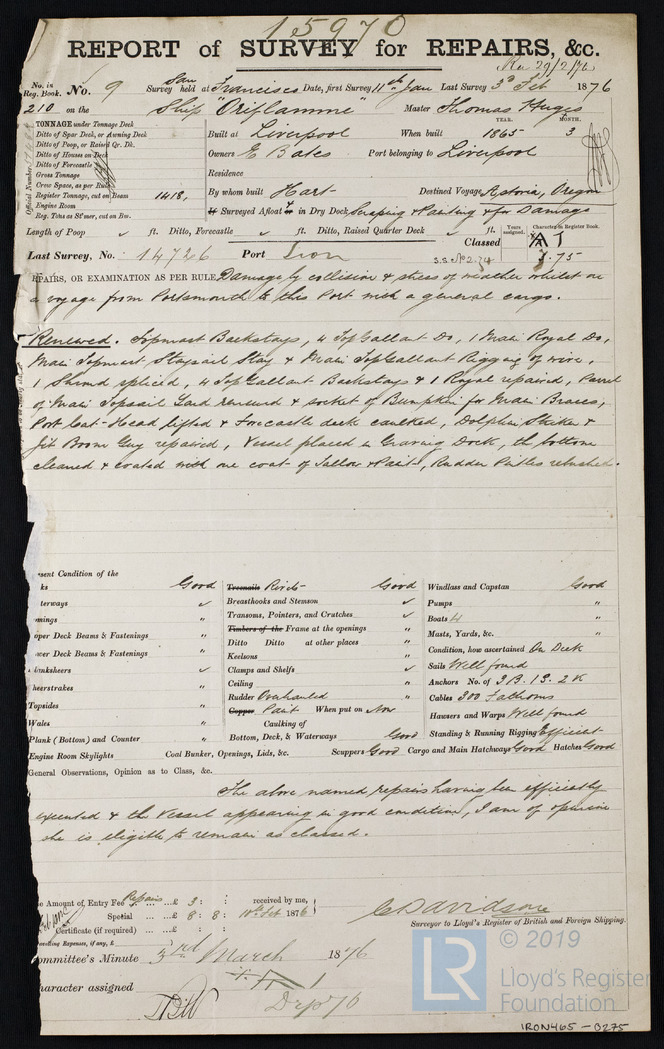 15970
REPORT of SURVEY for REPAIRS, &c.
Rec 29/2/76
No. in Reg. Book. No. 9 Survey held at San Francisco Date, first Survey 11th Jan Last Survey 3d Feb 1876
210 on the Ship "Oriflamme" Master Thomas Huges
TONNAGE under Tonnage Deck
Ditto of Spar Deck, or Awning Deck
Ditto of Poop, or Raised Qr. Dk.
Ditto of Houses on Deck
Ditto of Forecastle
Gross Tonnage
Crew Space, as per Rule
Register Tonnage, cut on Beam 1418,
Engine Room
Reg. Tons as St'mer, cut on Bm.
Official Number
Built at Liverpool When built YEAR. 1865 MONTH. 3
Owners E Bates Port belonging to Liverpool
Residence
By whom built Hart Destined Voyage Astoria, Oregon
If Surveyed Afloat or in Dry Dock Scraping & Painting & for Damage
Length of Poop ft. Ditto, Forecastle ft. Ditto, Raised Quarter Deck ft.
Years assigned. Character in Register Book.
Classed A 1
Last Survey, No. 14726 Port Iron S.S. No 2.74 3.75
EPAIRS, OR EXAMINATION AS PER RULE, Damage by collision & stress of weather whilst on
a voyage from Portsmouth to this Port with a general cargo.
Renewed. Topmast Backstays, 4 TopGallant Do, 1 Main Royal Do,
Main Topmast Staysail Stay & Main TopGallant Rigging of wire,
1 Shroud spliced, 4 TopGallant Backstays & 1 Royal repaired, Parrel
of Main Topsail Yard renewed & socket of Bumpkin for Main Braces,
Port Cat-Head lifted & Forecastle deck caulked, Dolphin Striker &
Jib Boom Guy repaired, Vessel placed in Graving Dock, the bottom
cleaned & coated with one coat of Tallow & Paint, Rudder Pintles rebushed.
esent Condition of the
ks Good
terways
mings "
pper Deck Beams & Fastenings "
wer Deck Beams & Fastenings "
lanksheers
heerstrakes "
Topsides "
Wales "
Plank (Bottom) and Counter "
Engine Room Skylights Coal Bunker, Openings, Lids, &c.
Treenails Rivets Good
Breasthooks and Stemson
Transoms, Pointers, and Crutches
Timbers of the Frame at the openings "
Ditto Ditto at other places "
Keelsons "
Clamps and Shelfs
Ceiling "
Rudder Overhauled "
Copper Paint When put on Now
Caulking of
Bottom, Deck, & Waterways Good
Scuppers Good Cargo and Main Hatchways Good Hatches Good
Windlass and Capstan Good
Pumps "
Boats 4 "
Masts, Yards, &c. "
Condition, how ascertained On Deck
Sails Well found
Anchors No. of 3 B. 1 S. 2 K
Cables 300 Fathoms
Hawsers and Warps Well found
Standing & Running Rigging Efficient
General Observations, Opinion as to Class, &c.
The above named repairs having been efficiently
executed & the vessel appearing in good condition, I am of opinion
she is eligible to remain as classed.
e Amount of, Entry Fee Repairs ...£ 3 : : received by me,
Special ...£ 8 : 8 : 10th Feb 1876
Certificate (if required) ...£ : :
avelling Expenses, if any, £
C Davidson
Surveyor to Lloyd's Register of British and Foreign Shipping.
ommittee's Minute 3rd March 1876
haracter assigned
© 2019
LR
Lloyd's Register
Foundation
IRON465-0275